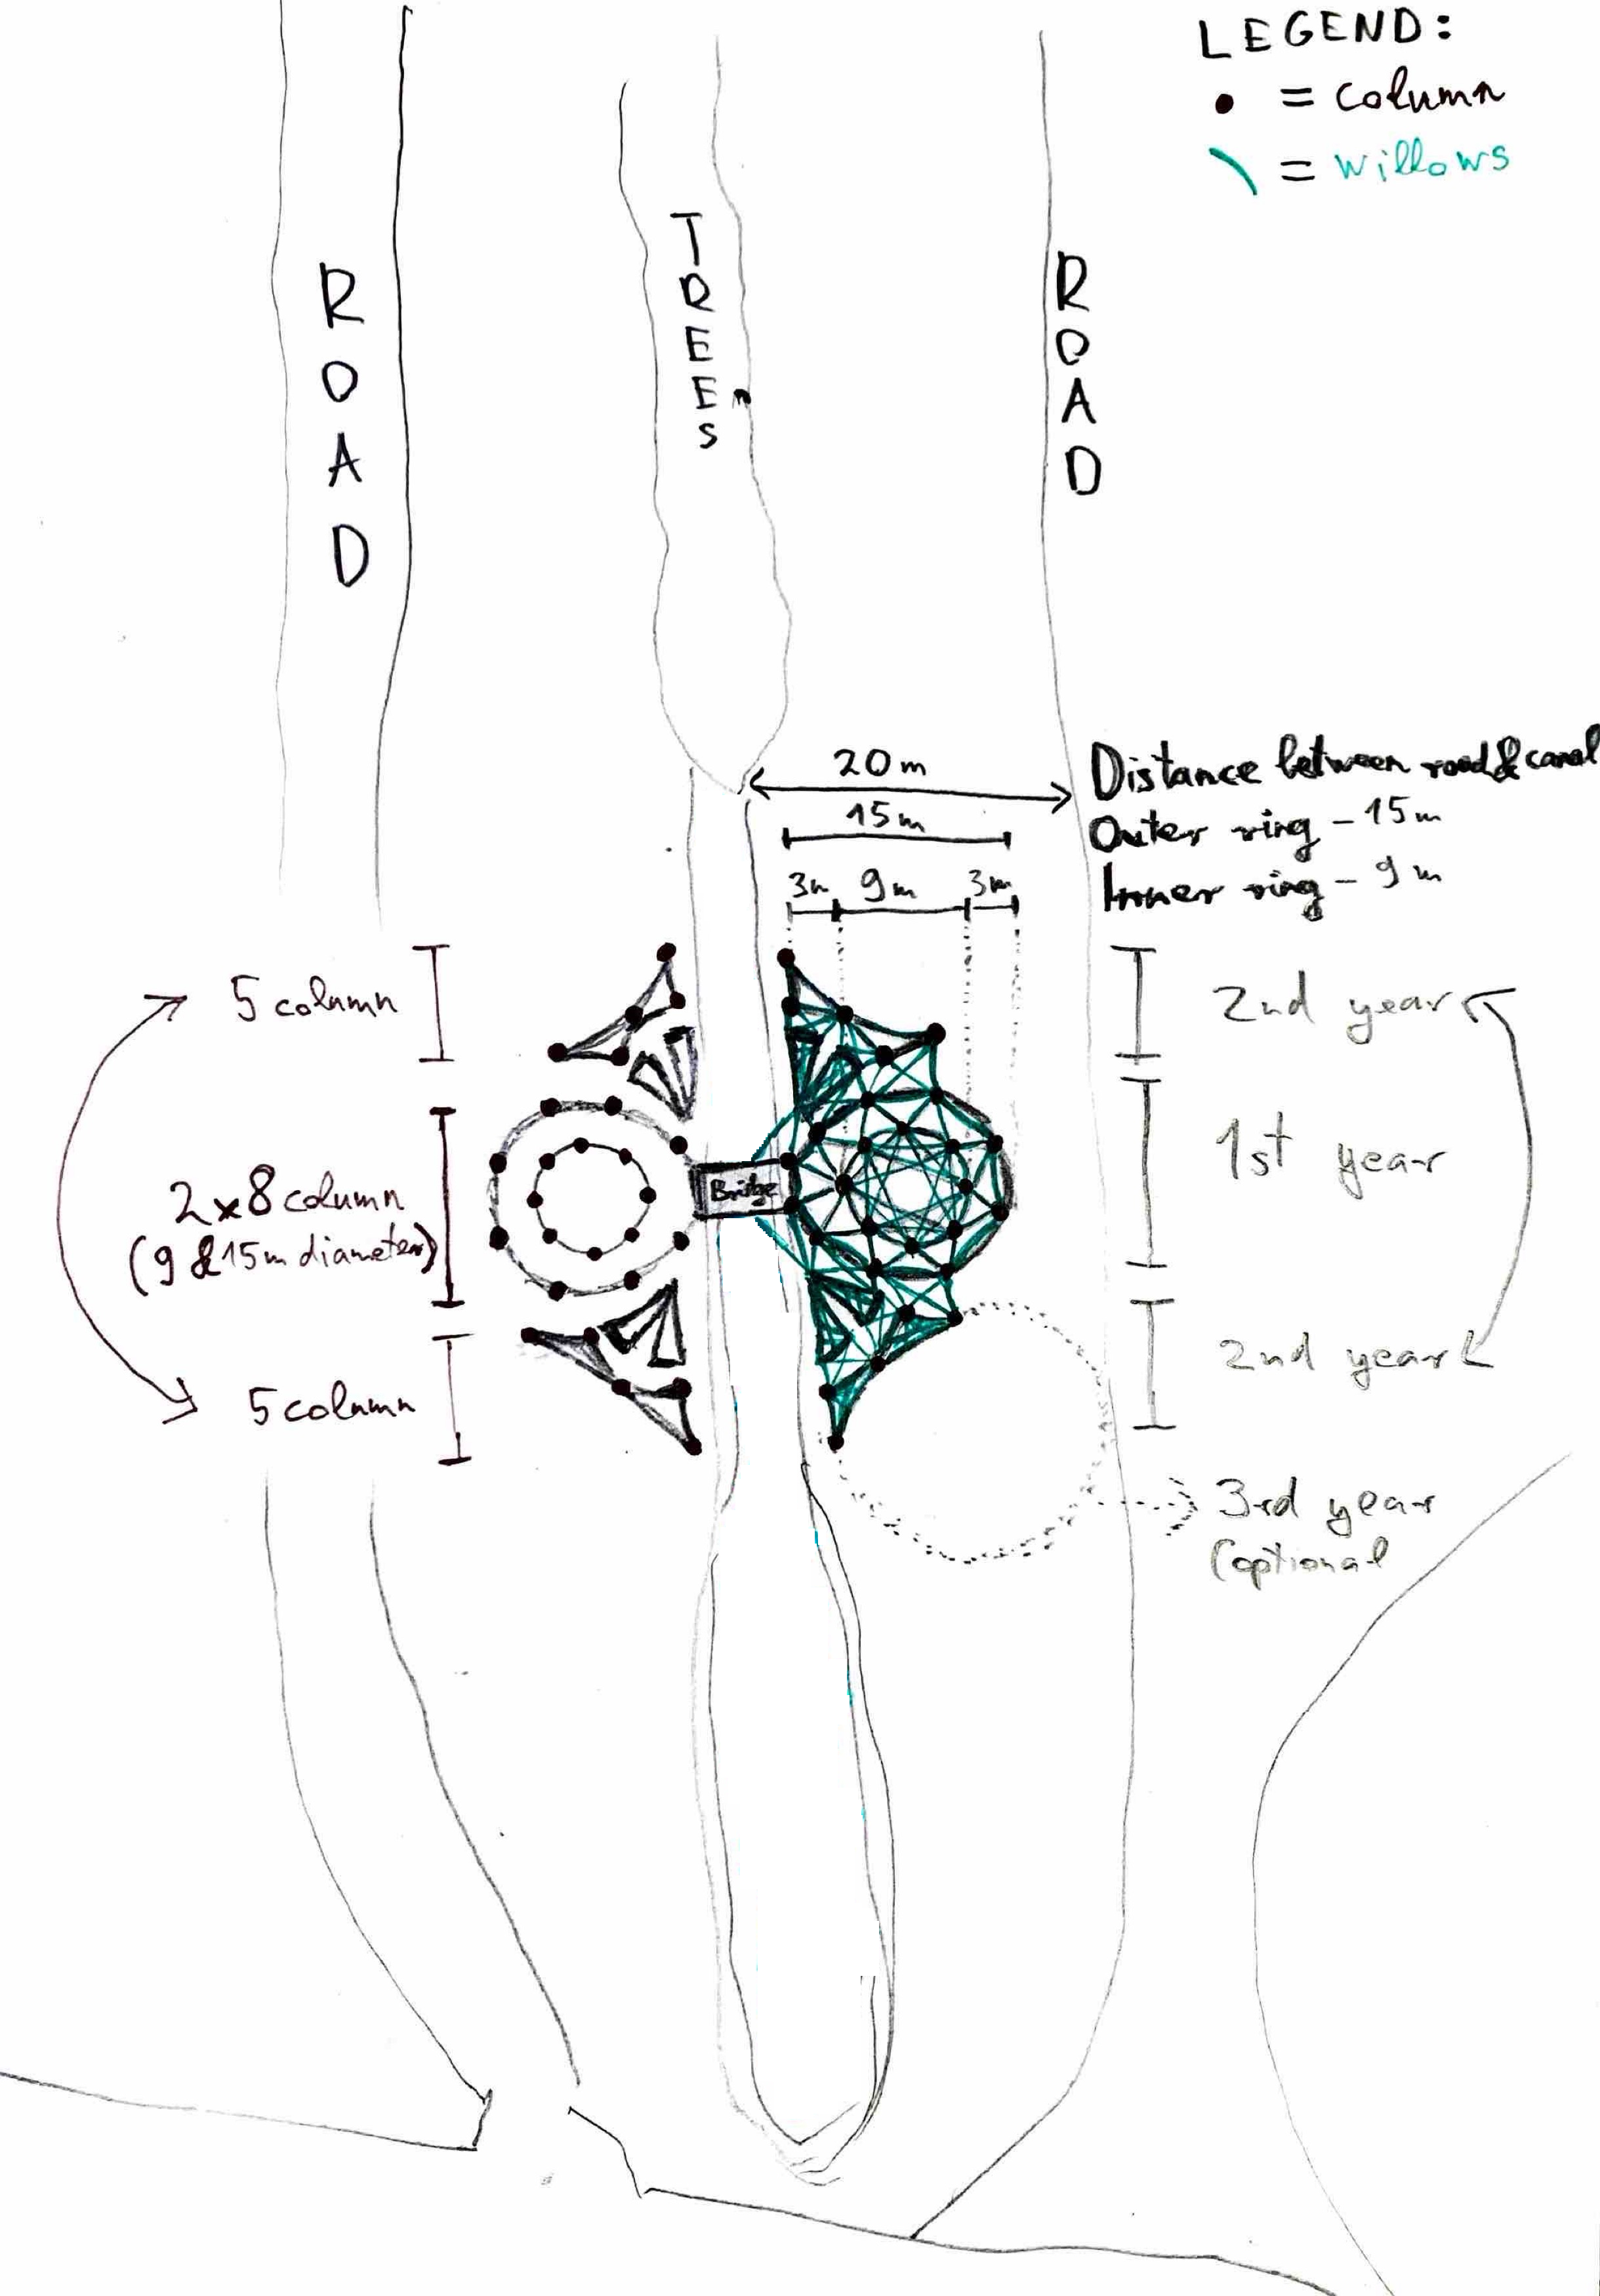 LEGEND:
= column
= willows
ROAD
TREES
ROAD
20m
15m
3m 9m 3m
Distance between road & canal
Outer ring - 15m
Inner ring - 9m
5 column
2x8 column
(9 & 15m diameter)
5 column
Bridge
2nd year
1st year
2nd year
3rd year
(optional